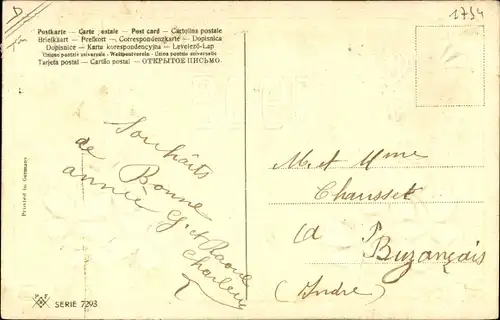 Postkarte – Carte postale – Post card – Cartolina postale
Briefkaart – Brefkort – Correspondenzkarte – Dopisnica
Dopisnice – Karta korespondencyjna – Levelező-Lap
Union postale universelle – Weltpostverein – Unione postale universale
Tarjeta postal – Cartão postal – ОТКРЫТОЕ ПИСЬМО.
1734
Printed in Germany
Souhaits
de Bonne
année G. et Raoul
M. et Mme
Chausset
à
Buzançais
(Indre)
SERIE 7293